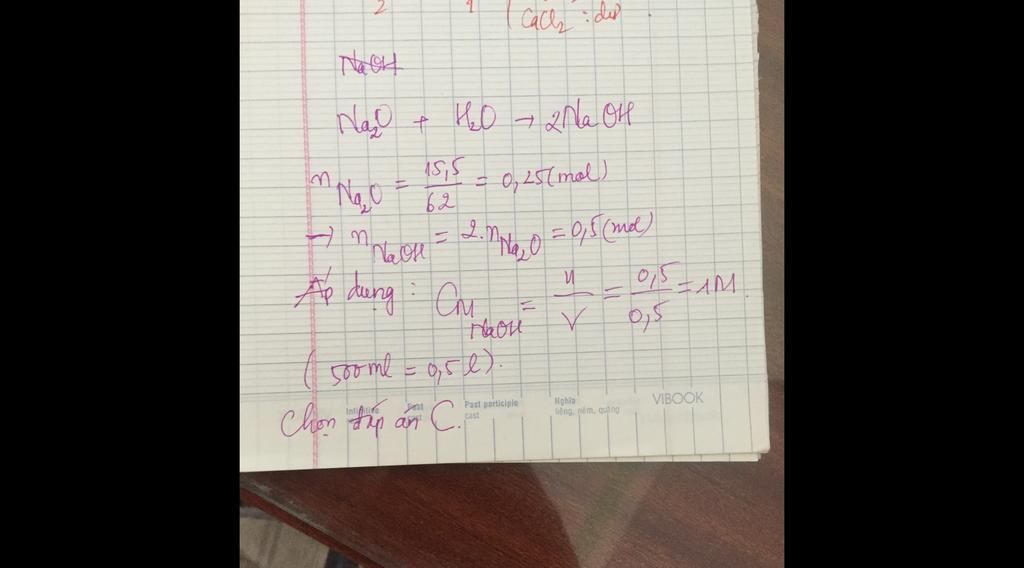 2 1 CaCl₂ : dư
NaOH
Na₂O + H₂O → 2NaOH
n Na₂O = 15,5/62 = 0,25 (mol)
→ n NaOH = 2.n Na₂O = 0,5 (mol)
Áp dụng : CM NaOH = n/V = 0,5/0,5 = 1M.
( 500ml = 0,5 l ).
VIBOOK
Infinitive Past Past participle Nghĩa
cast cast liêng, ném, quăng
Chọn đáp án C.